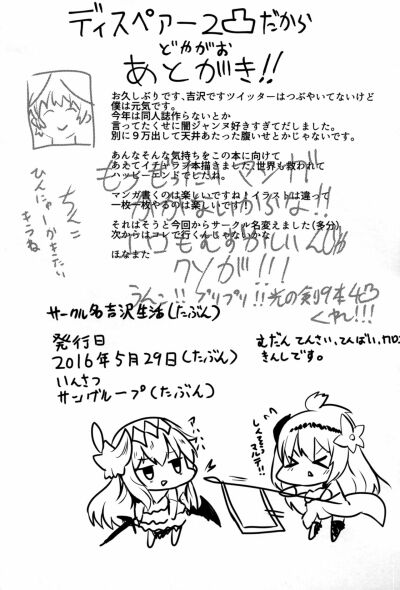 ディスペアー2凸だから
どやがお
あとがき!!
お久しぶりです、吉沢ですツイッターはつぶやいてないけど
僕は元気です。
今年は同人誌作らないとか
言ってたくせに闇ジャンヌ好きすぎてだしました。
別に9万出して天井あたった腹いせとかじゃないです。
あんなそんな気持ちをこの本に向けて
あえてイチャラブ本描きました!世界も救われて
ハッピーエンドでしたね。
マンガ書くのは楽しいですね!イラストは違って
一枚一枚やるのは楽しいです
それはそうと今回からサークル名変えました(多分)
次からはコレで行くんじゃないかな
ほなまた
ちんこ
クソが!!!
うんこ!!ブリブリ!!光の剣9本4凸
くやしい!!!
サークル名吉沢生活(たぶん)
発行日
2016年5月29日(たぶん)
いんさつ
サングループ(たぶん)
むだん てんさい、てんばい、
きんしです。